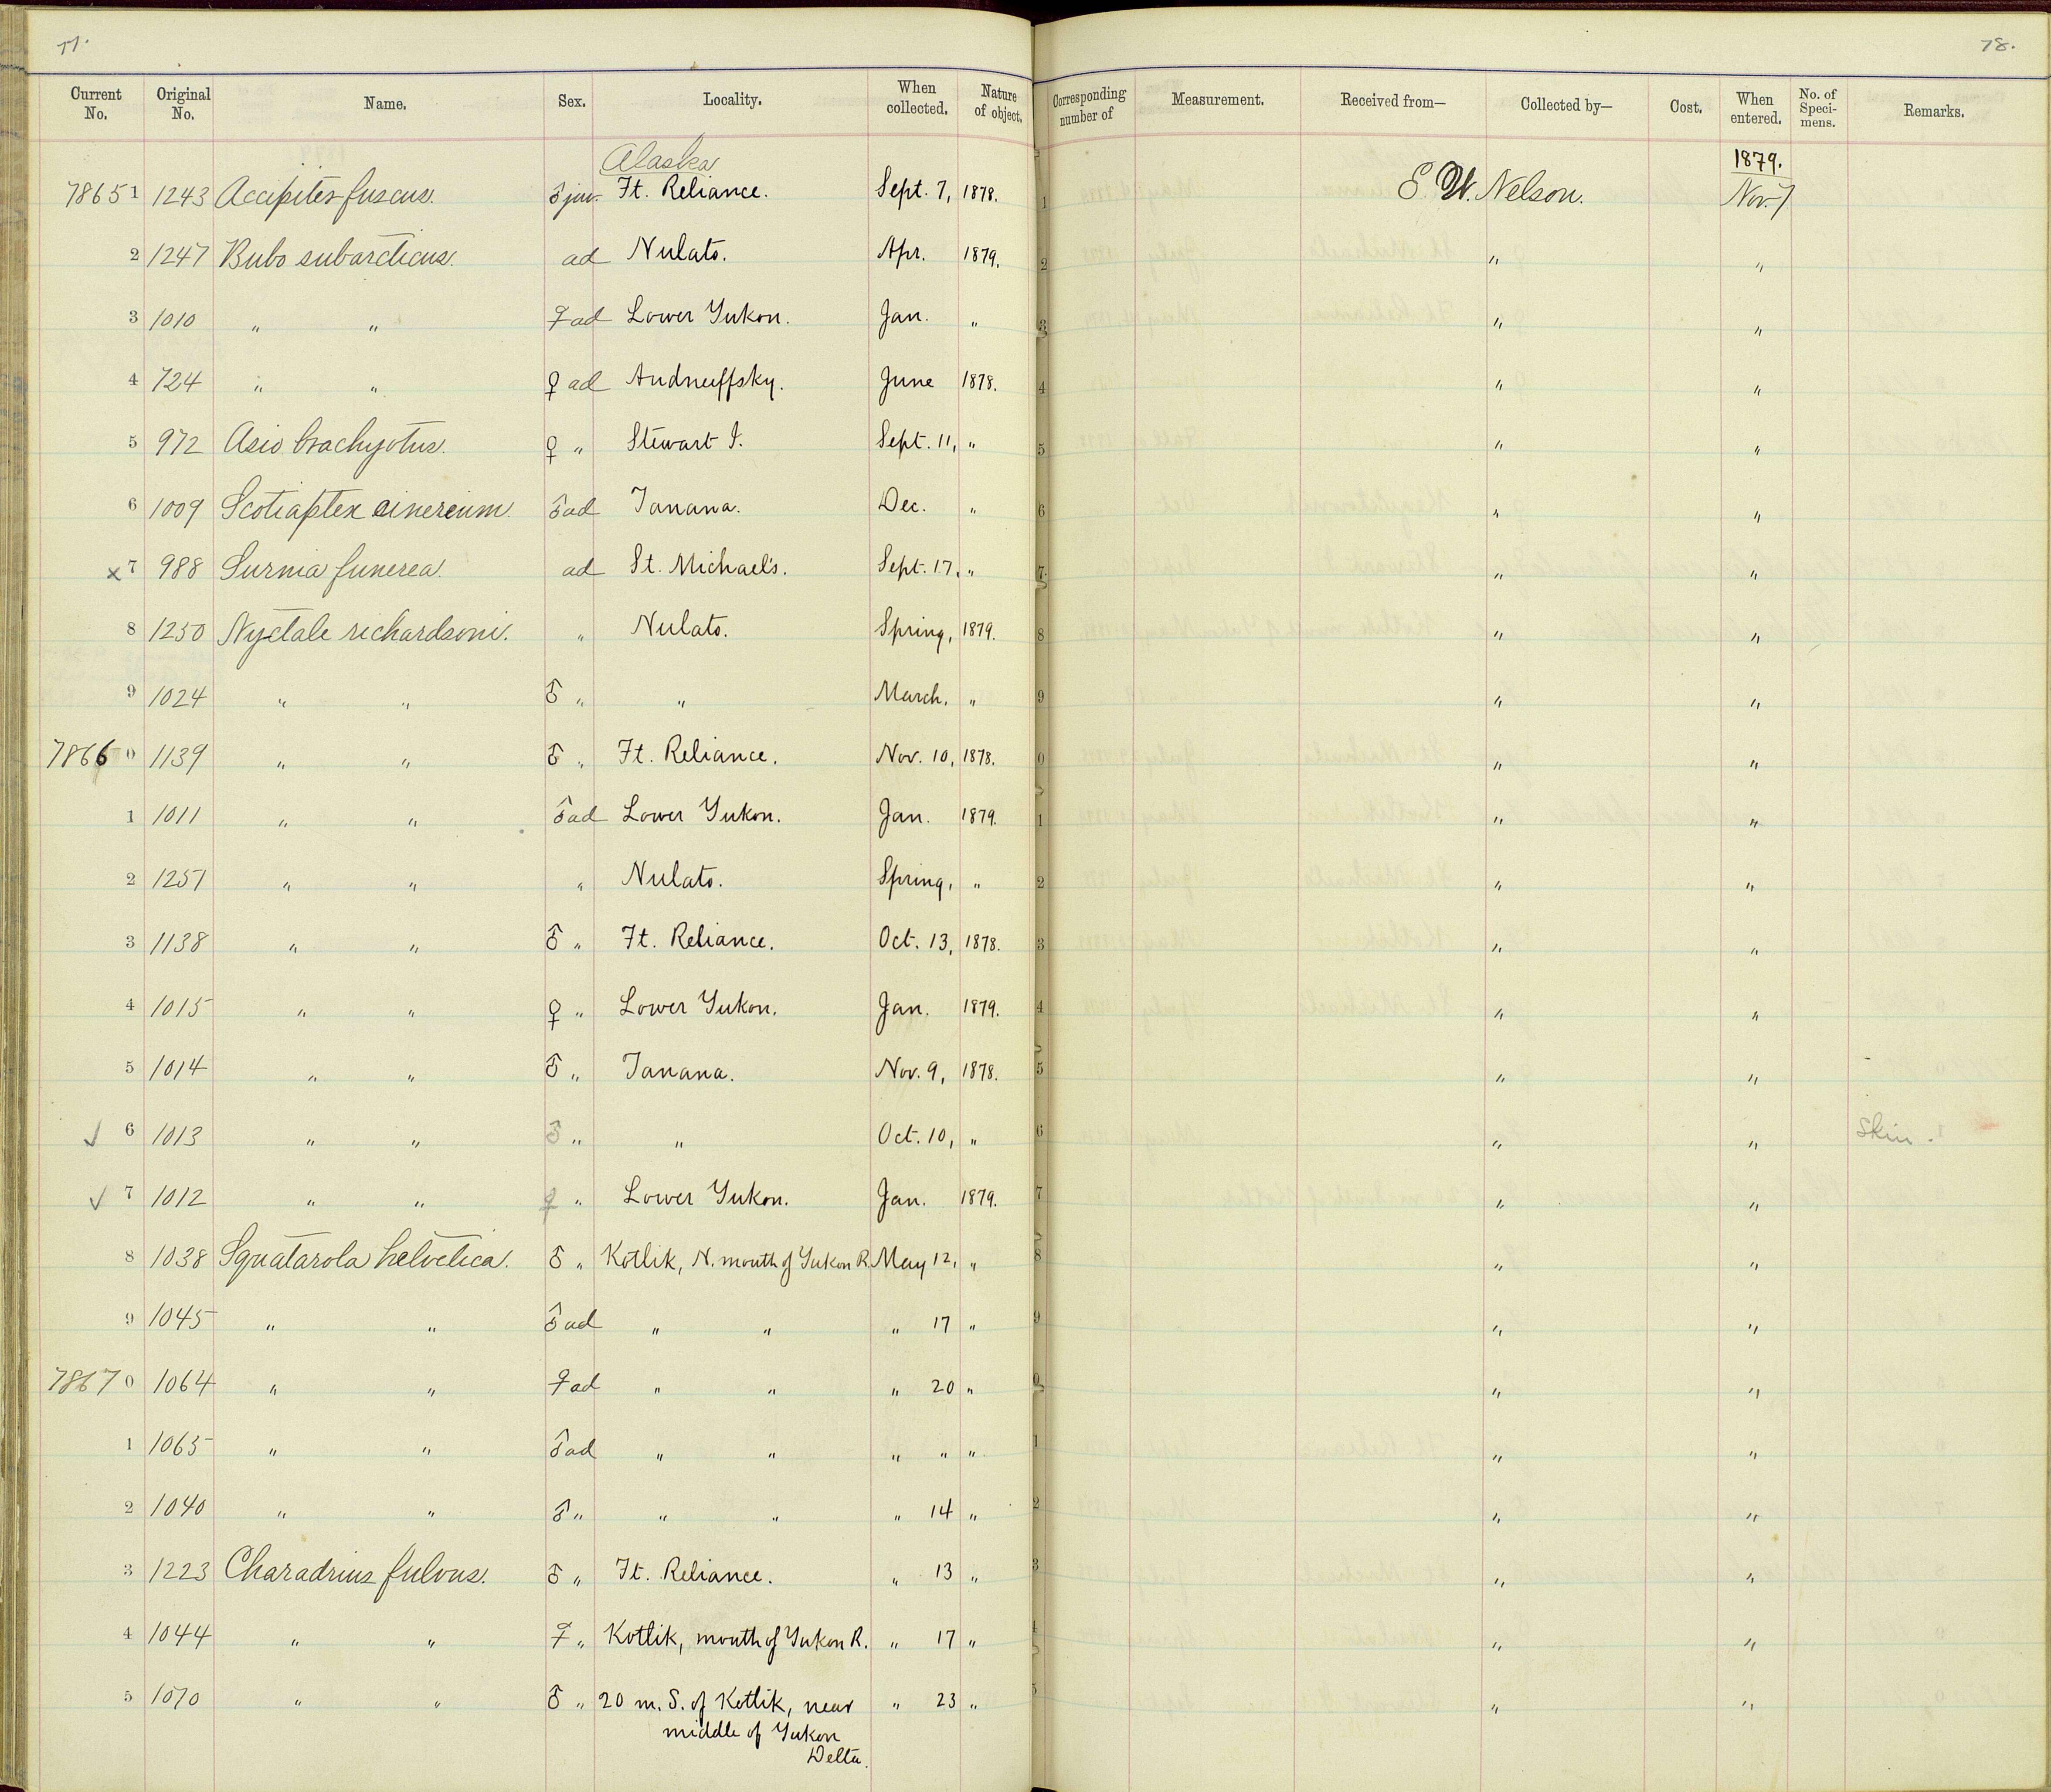 77. 78.
Current No. Original No. Name. Sex. Locality. When collected. Nature of object. Corresponding number of Measurement. Received from— Collected by— Cost. When entered. No. of Specimens. Remarks.
Alaska 1879.
78651 1243 Accipiter fuscus. ♂ juv. Ft. Reliance. Sept. 7, 1878. 1 E. W. Nelson. Nov. 7
2 1247 Bubo subarcticus. ad Nulato. Apr. 1879. 2 " "
3 1010 " " ♀ ad Lower Yukon. Jan. " 3 " "
4 724 " " ♀ ad Andrueffsky. June 1878. 4 " "
5 972 Asio brachyotus. ♀ " Stewart I. Sept. 11, " 5 " "
6 1009 Scotiaptex cinereum. ♂ ad Tanana. Dec. " 6 " "
x 7 988 Surnia funerea. ad St. Michael's. Sept. 17, " 7 " "
8 1250 Nyctale richardsoni. " Nulato. Spring, 1879. 8 " "
9 1024 " " ♂ " " March, " 9 " "
78660 1139 " " ♂ " Ft. Reliance. Nov. 10, 1878. 0 " "
1 1011 " " ♂ ad Lower Yukon. Jan. 1879. 1 " "
2 1251 " " " Nulato. Spring, " 2 " "
3 1138 " " ♂ " Ft. Reliance. Oct. 13, 1878. 3 " "
4 1015 " " ♀ " Lower Yukon. Jan. 1879. 4 " "
5 1014 " " ♂ " Tanana. Nov. 9, 1878. 5 " "
✓ 6 1013 " " ♂ " " Oct. 10, " 6 " " Skin.
✓ 7 1012 " " ♀ " Lower Yukon. Jan. 1879. 7 " "
8 1038 Squatarola helvetica. ♂ " Kotlik, N. mouth of Yukon R. May 12, " 8 " "
9 1045 " " ♂ ad " " " 17 " 9 " "
78670 1064 " " ♀ ad " " " 20 " 0 " "
1 1065 " " ♂ ad " " " " " 1 " "
2 1040 " " ♂ " " " " 14 " 2 " "
3 1223 Charadrius fulvus. ♂ " Ft. Reliance. " 13 " 3 " "
4 1044 " " ♀ " Kotlik, mouth of Yukon R. " 17 " 4 " "
5 1070 " " ♂ " 20 m. S. of Kotlik, near " 23 " 5 " "
middle of Yukon
Delta.